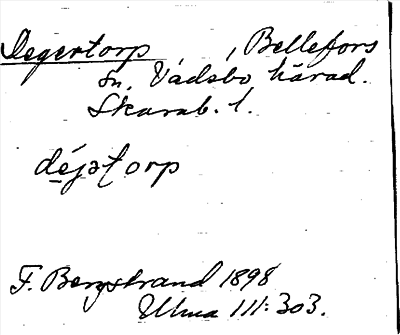 Degertorp, Bellefors
sn, Vadsbo härad.
Skarab. l.
dé̱jətorp
F. Bergstrand 1898
Ulma 111:303.